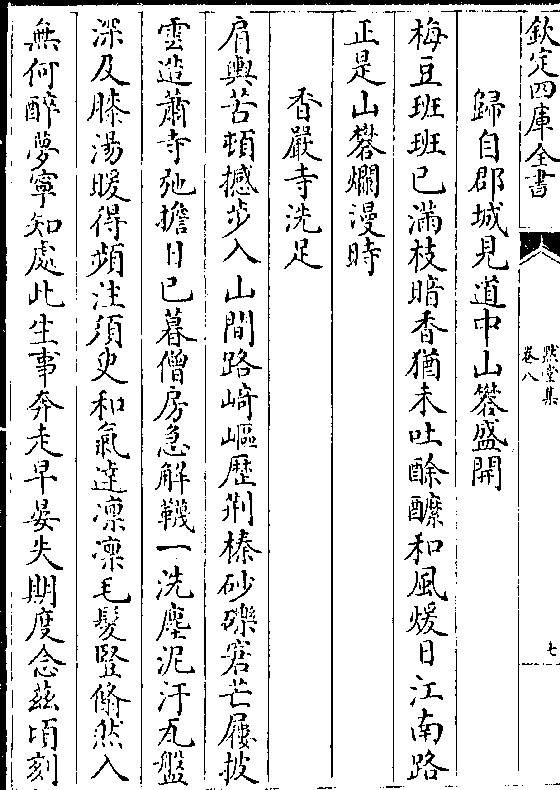 欽定四庫全書
黙堂集
卷八
七
歸自郡城見道中山礬盛開
梅豆班班已滿枝暗香猶未吐酴醿和風煖日江南路
正是山礬爛漫時
香嚴寺洗足
肩輿苦頓撼步入山間路崎嶇歴荆榛砂礫窘芒屨披
雲造蕭寺弛擔日已暮僧房急解韈一洗塵泥汙瓦盤
深及膝湯暖得頻注須臾和氣達凛凛毛髮豎翛然入
無何醉夢寧知處此生事奔走早晏失期度念兹頃刻